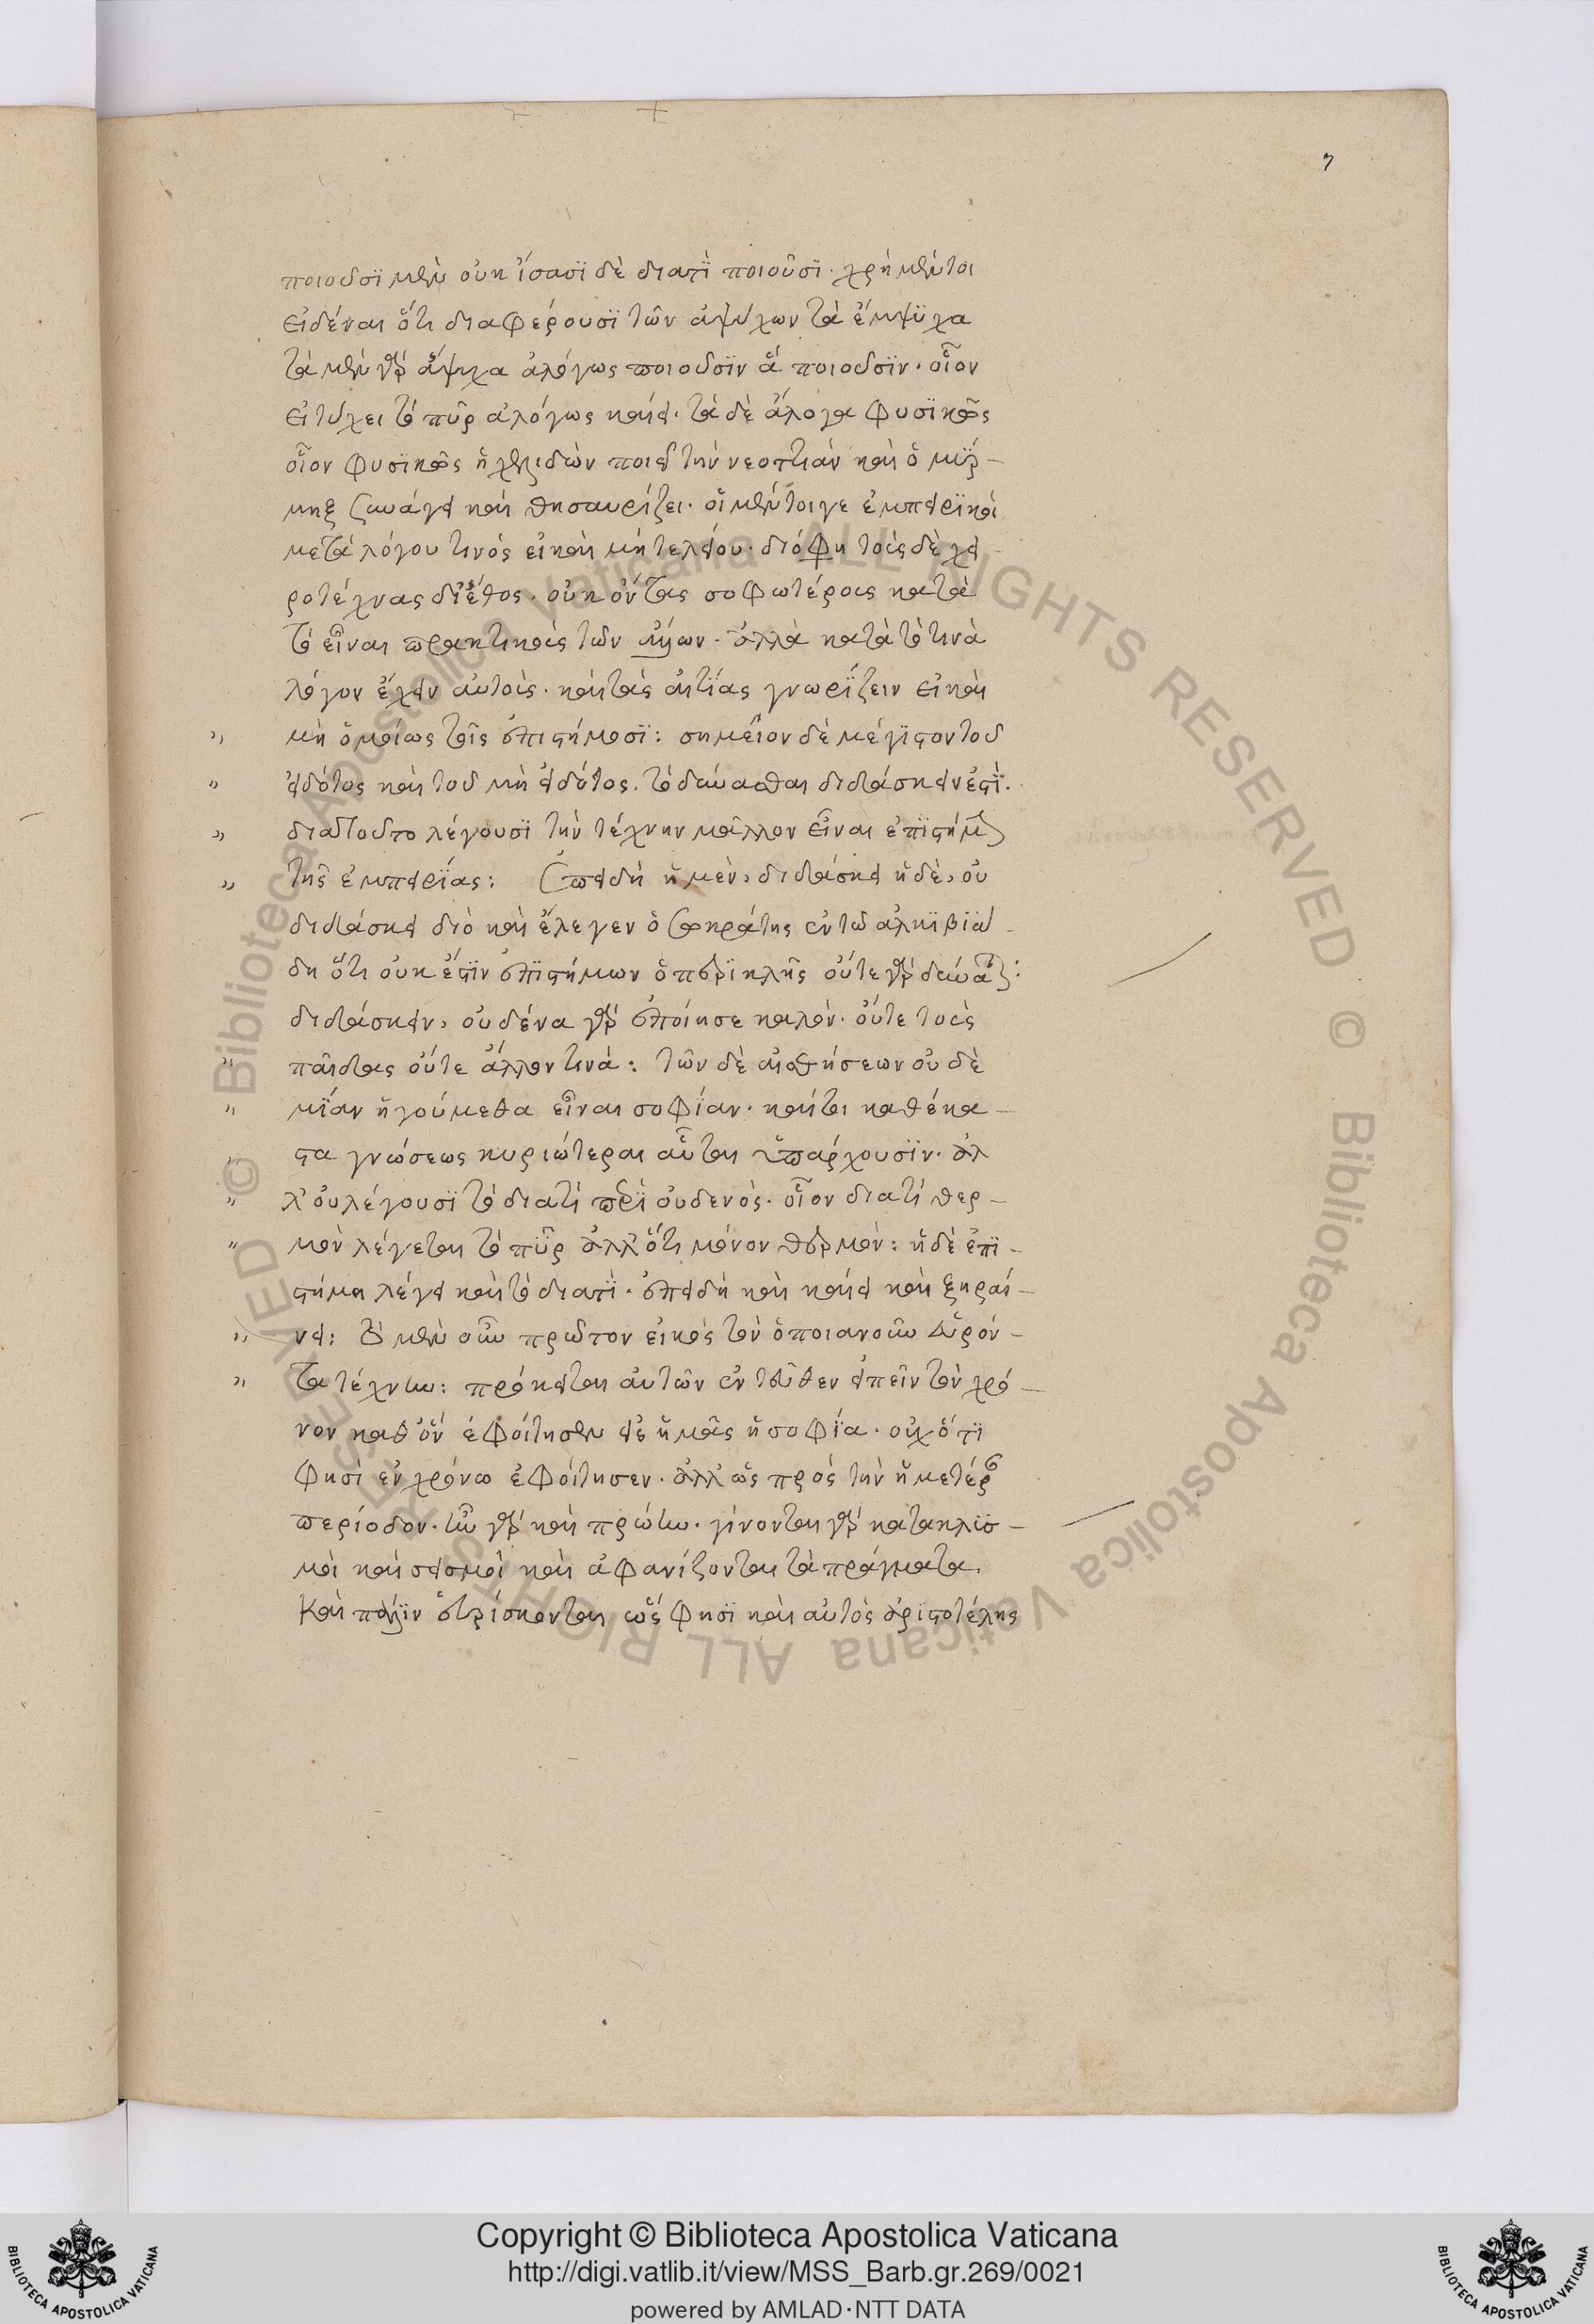 7
ποιοῦσϊ μὲν οὐκ ἴσασϊ δὲ διατὶ ποιοῦσϊ· χρὴ μέντοι
εἰδέναι ὅτι διαφέρουσϊ τῶν ἀψύχων τὰ ἔμψϋχα
τὰ μὲν γὰρ ἄψυχα ἀλόγως ποιοῦσϊν ἅ ποιοῦσϊν· οἷον
εἰ τύχει τὸ πῦρ ἀλόγως καίει· τὰ δὲ ἄλογα φυσϊκῶς
οἷον φυσϊκῶς ἡ χελιδὼν ποιεῖ τὴν νεοττιὰν καὶ ὁ μύρ-
μηξ συνάγει καὶ θησαυρίζει· οἱ μέντοιγε ἐμπειρϊκοὶ
μετὰ λόγου τινὸς εἰ καὶ μὴ τελείου· διό φη τοὺς δὲ χει
ροτέχνας δι' ἔθος· οὐκ ὄντας σοφωτέρους κατὰ
τὸ εἶναι πρακτικοὺς τῶν ἀλόγων· ἀλλὰ κατὰ τό τινὰ
λόγον ἔχειν αὐτοὺς· καὶ τὰς αἰτίας γνωρίζειν εἰ καὶ
μὴ ὁμοίως τοῖς ἐπιστήμοσϊ: σημεῖον δὲ μέγϊστον τοῦ
εἰδότος καὶ τοῦ μὴ εἰδότος· τὸ δύνασθαι διδάσκειν ἐστὶ·
διατοῦτο λέγουσϊ τὴν τέχνην μᾶλλον εἶναι ἐπϊστήμην
τῆς ἐμπειρίας: ἐπειδὴ ἡ μὲν, διδάσκει ἡ δὲ, οὐ
διδάσκει διὸ καὶ ἔλεγεν ὁ σωκράτης ἐν τῶ αλκϊβιά
δη ὅτι οὐκ ἔστϊν ἐπϊστήμων ὁ περϊκλῆς οὔτε γὰρ δύναται:
διδάσκειν, οὐδένα γὰρ ἐποίησε καλὸν· οὔτε τοὺς
παῖδας οὔτε ἄλλον τινὰ: τῶν δὲ αἰσθήσεων οὐδὲ
μϊὰν ἡγούμεθα εἶναι σοφίαν· καίτοι καθέκα-
στα γνώσεως κυριώτεραι αὗται ὑπάρχουσϊν· ἀλ
λ' οὐ λέγουσϊ τὸ διατὶ περὶ οὐδενὸς· οἷον διατί θερ-
μὸν λέγεται τὸ πῦρ ἀλλ' ὅτι μόνον θερμὸν: ἡ δὲ ἐπϊ-
στήμη λέγει καὶ τὸ διατὶ· ἐπειδὴ καὶ καίει καὶ ξηραί-
νει: Τὸ μὲν οὖν πρῶτον εἰκὸς τὸν ὁποιανοῦν εὑρόν-
τα τέχνην: πρόκειται αὐτῶν ἐντεῦθεν εἰπεῖν τὸν χρό-
νον καθ' ὅν ἐφοίτησεν εἰς ἡμᾶς ἡ σοφϊα· οὐχ ὅτϊ
φησὶ ἐν χρόνω ἐφοίτησεν· ἀλλ' ὡς πρὸς τὴν ἡμετέραν
περίοδον· τὴν γὰρ καὶ πρώτην· γίνονται γὰρ κατακλϋσ-
μοὶ καὶ σεισμοὶ καὶ ἀφανίζονται τὰ πράγματα.
Καὶ πάλϊν εὑρίσκονται, ὥς φησϊ καὶ αὐτὸς ἀριστοτέλης
Copyright © Biblioteca Apostolica Vaticana
http://digi.vatlib.it/view/MSS_Barb.gr.269/0021
powered by AMLAD·NTT DATA